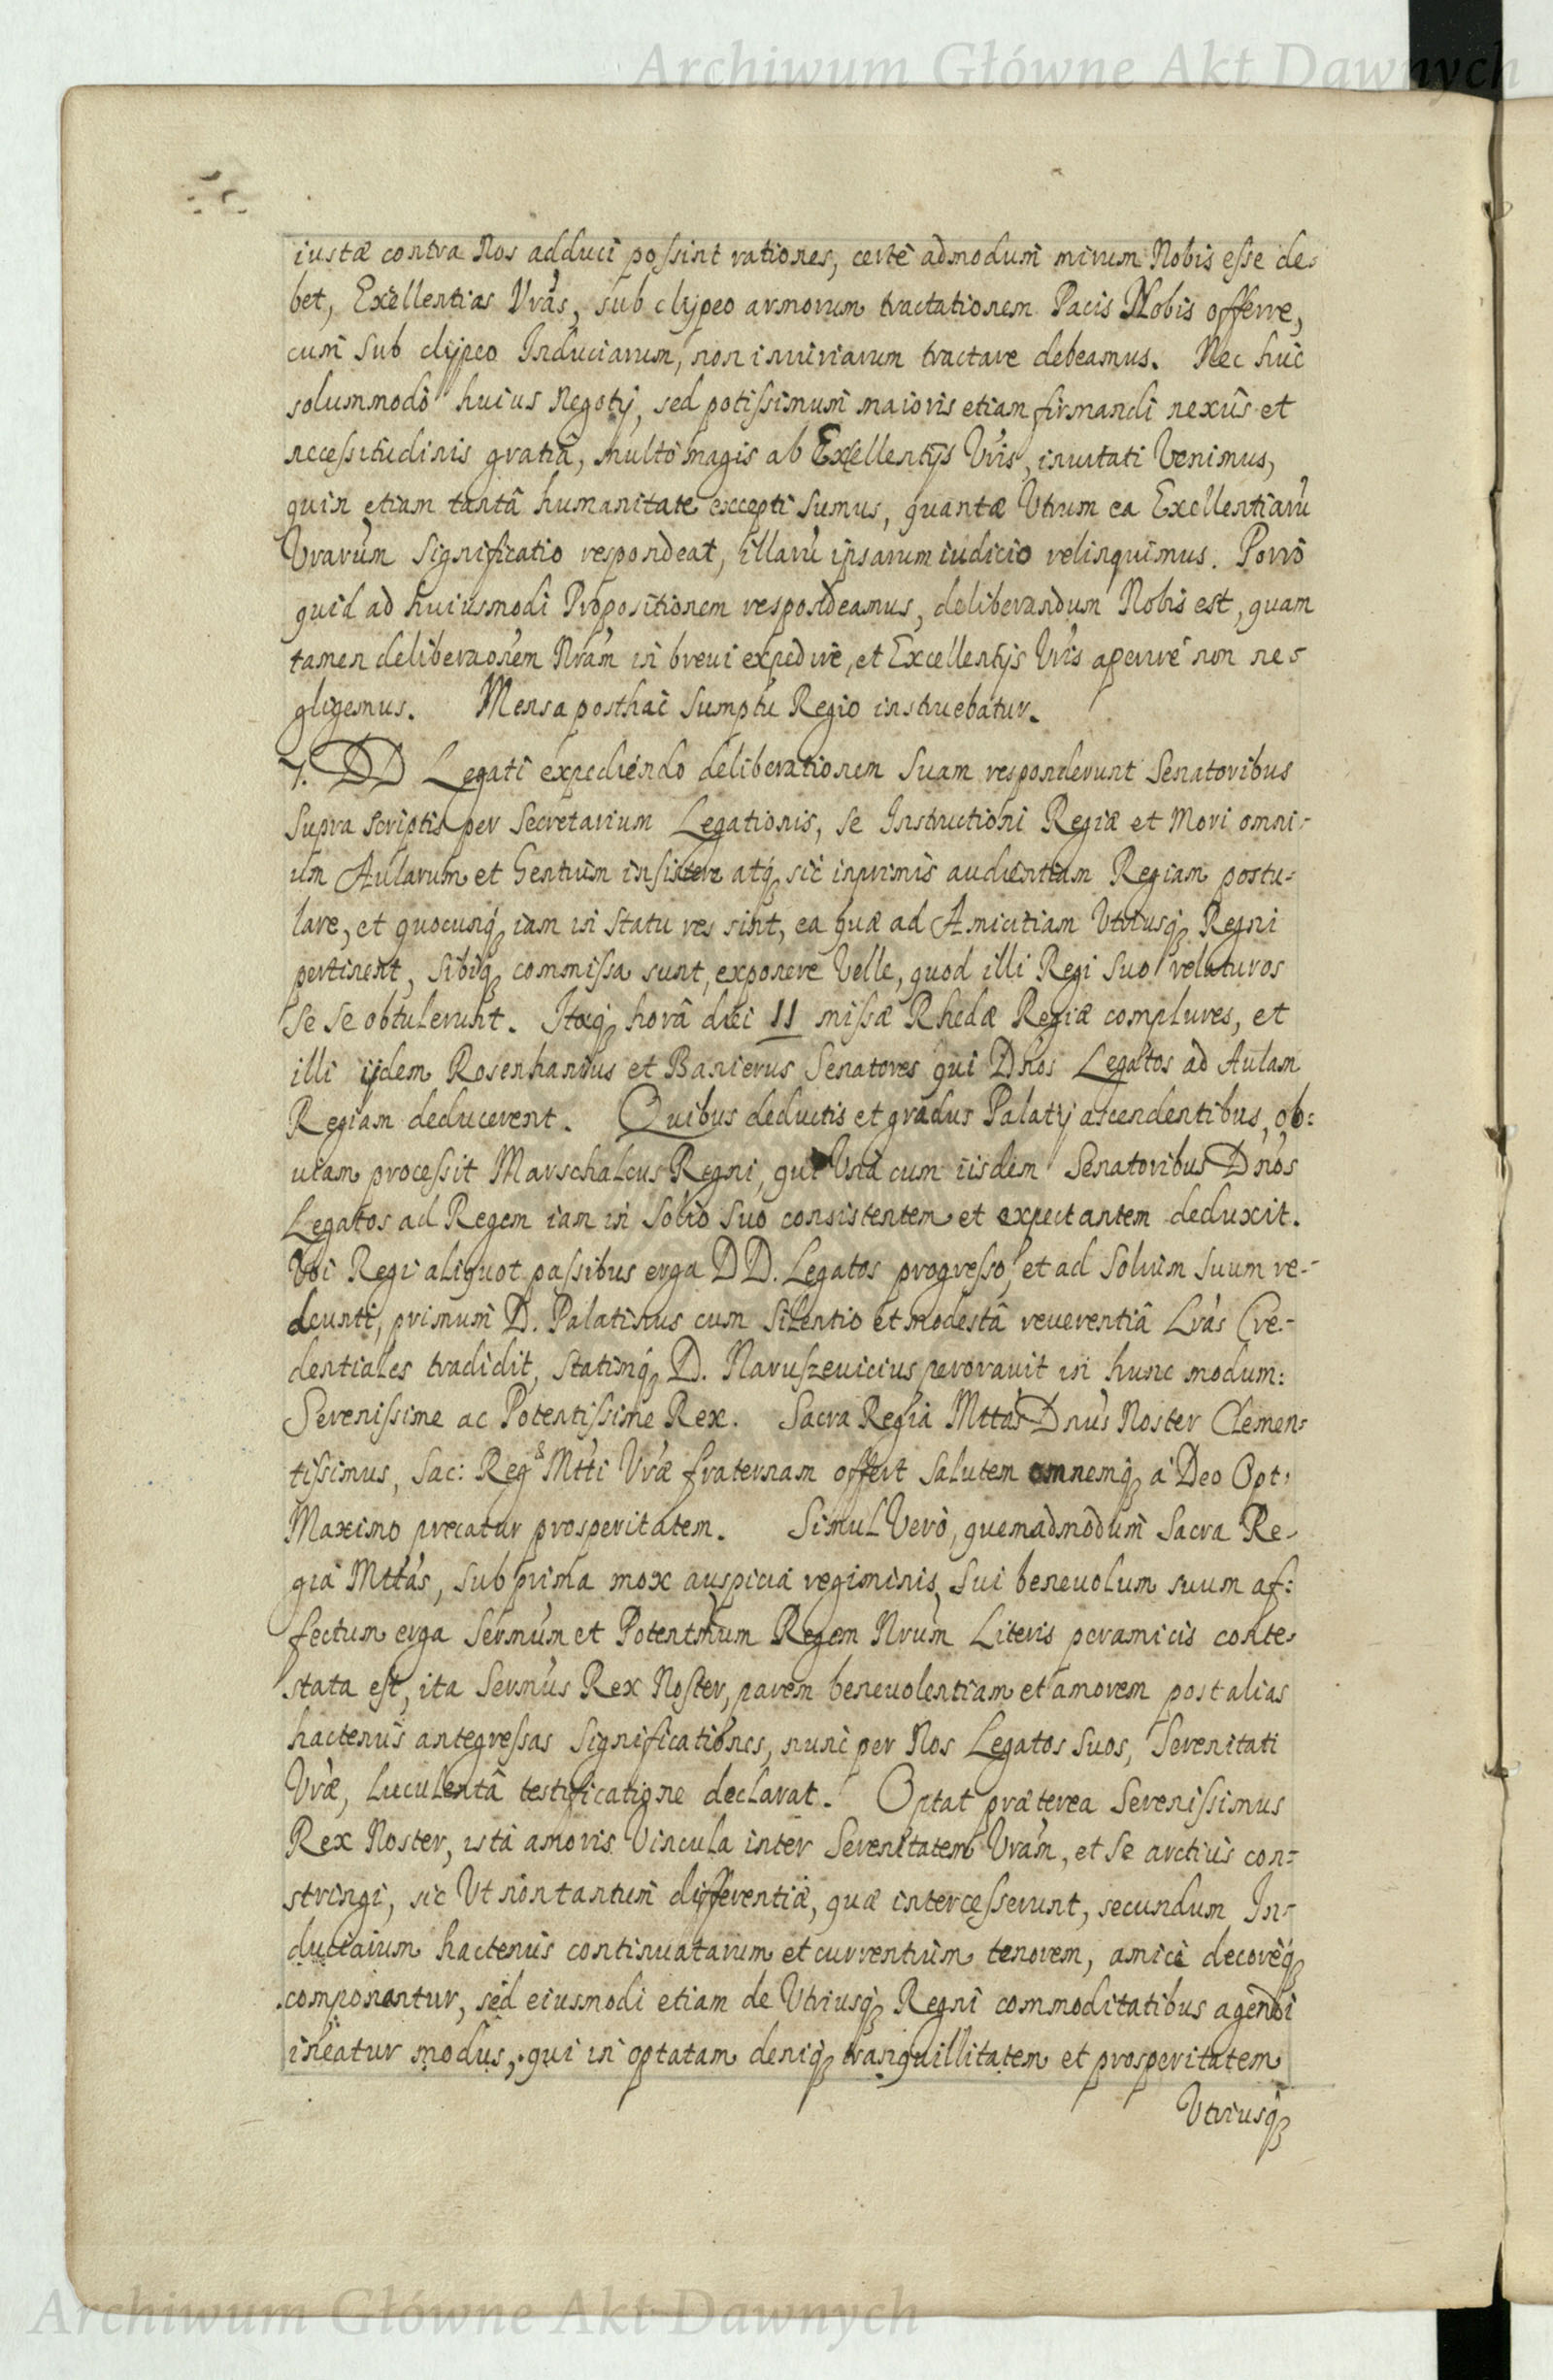 Archiwum Główne Akt Dawnych
iustæ contra Nos adduci possint rationes, certè admodum̀ mirum Nobis esse de-
bet, Excellentias Vrãs, sub clypeo armorum tractationem Pacis Nobis offerre,
cum̀ sub clypeo Induciarum, non iniuriarum tractare debeamus. Nec huc
solummodò huius Negotij, sed potissimum̀ maioris etiam firmandi nexus et
necessitudinis gratiâ, multò magis ab Excellentijs Vrĩs, inuitati Venimus,
quin etiam tantâ humanitate excepti sumus, quantæ Vtrum ea Excellentiarũ
Vrarũm significatio respondeat, illarũ ipsarum iudicio relinquimus. Porrò
quid ad huiusmodi Propositionem respondeamus, deliberandum Nobis est, quam
tamen deliberaõnem Nrãm in breui expedire, et Excellentijs Vrĩs aperire non ne-
gligemus. Mensa posthac sumptu Regio instruebatur.
7. DD Legati expediendo deliberationem suam responderunt Senatoribus
supra scriptis per Secretarium Legationis, se Instructioni Regiæ et Mori omni-
um Aularum et Gentium insistere atq́ꝫ sic inprimis audientiam Regiam postu-
lare, et quocunq́ꝫ iam in statu res sint, ea quæ ad Amicitiam Vtriusq́ꝫ Regni
pertinent, sibiq́ꝫ commissa sunt, exponere Velle, quod illi Regi suo relaturos
se se obtulerunt. Itaq́ꝫ horâ diei 11 missæ Rhedæ Regiæ complures, et
illi ijdem Rosenhanius et Banierus Senatores qui Dños Legatos ad Aulam
Regiam deducerent. Quibus deductis et gradus Palatij ascendentibus, ob-
uiam processit Marschalcus Regni, qui Vnà cum iisdem Senatoribus Dños
Legatos ad Regem iam in solio suo consistentem et expectantem deduxit.
Vbi Regi aliquot passibus erga DD. Legatos progresso, et ad solium suum re-
deunti, primum̀ D. Palatinus cum silentio et modestâ reuerentiâ Lrãs Cre-
dentiales tradidit, statimq́ꝫ D. Naruszeuicius perorauit in hunc modum:
Serenissime ac Potentissime Rex. Sacra Regia Mttãs Dnũs Noster Clemen-
tissimus, Sac: Regᵃ Mttĩ Vræ̃ fraternam offert salutem omnemq́ꝫ à Deo Opt:
Maximo precatur prosperitatem. Simul Verò, quemadmodum̀ Sacra Re-
gia Mttãs, sub prima mox auspicia regiminis sui beneuolum suum af-
fectum erga Sermũm et Potentm̃um Regem Nrũm Literis peramicis conte-
stata est, ita Sermũs Rex Noster, parem beneuolentiam et amorem post alias
hactenus antegressas significationes, nunc per Nos Legatos suos, Serenitati
Vræ̃, luculentâ testificatione declarat. Optat præterea Serenissimus
Rex Noster, ista amoris Vincula inter Serenitatem Vrãm, et se arctius con-
stringi, sic Vt non tantum̀ differentiæ, quæ intercesserunt, secundum In-
duciarum hactenus continuatarum et currentium tenorem, amicè decorèq́ꝫ
componantur, sed eiusmodi etiam de Vtriusq́ꝫ Regni commoditatibus agendi
ineatur modus, qui in optatam deniq́ꝫ tranquillitatem et prosperitatem
Vtriusq́ꝫ
Archiwum Główne Akt Dawnych